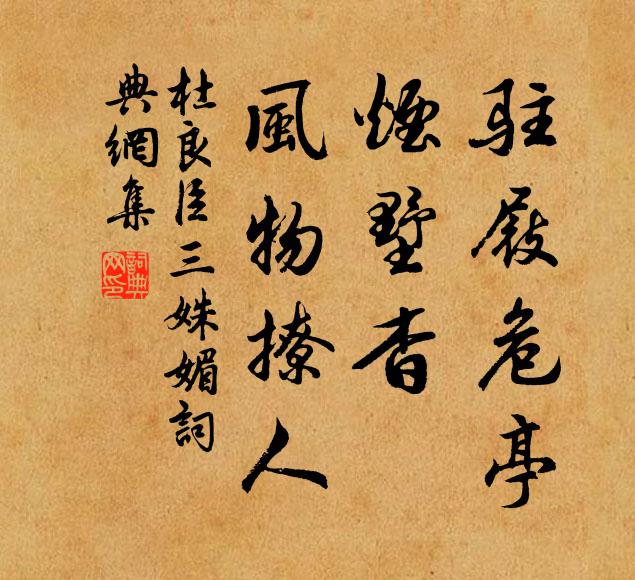 駐屐危亭
煙墅杳
風物撩人
杜良臣三姝媚詞
典網集
詞典
网印